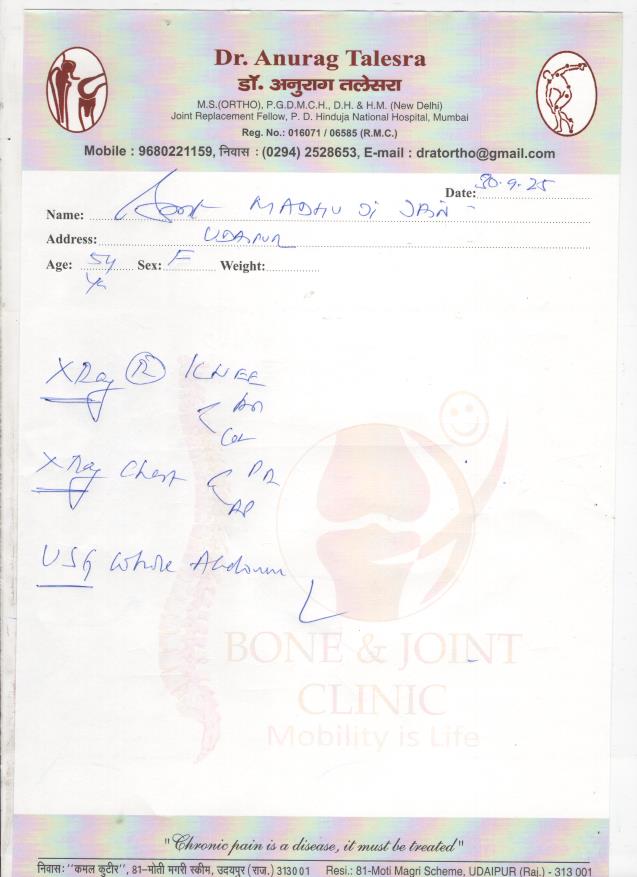 Dr. Anurag Talesra
डॉ. अनुराग तलेसरा
M.S.(ORTHO), P.G.D.M.C.H., D.H. & H.M. (New Delhi)
Joint Replacement Fellow, P. D. Hinduja National Hospital, Mumbai
Reg. No.: 016071 / 06585 (R.M.C.)
Mobile : 9680221159, निवास : (0294) 2528653, E-mail : dratortho@gmail.com
Date: 30.9.25
Name: MADHU Ji JAIN
Address: UDAIPUR
Age: 54 Sex: F Weight:
Yr
X Ray R KNEE
X Ray Chest PA
AP
USG Whole Abdomen
BONE & JOINT
CLINIC
Mobility is Life
"Chronic pain is a disease, it must be treated"
निवास: "कमल कुटीर", 81-मोती मगरी स्कीम, उदयपुर (राज.) 313001 Resi.: 81-Moti Magri Scheme, UDAIPUR (Raj.) - 313 001